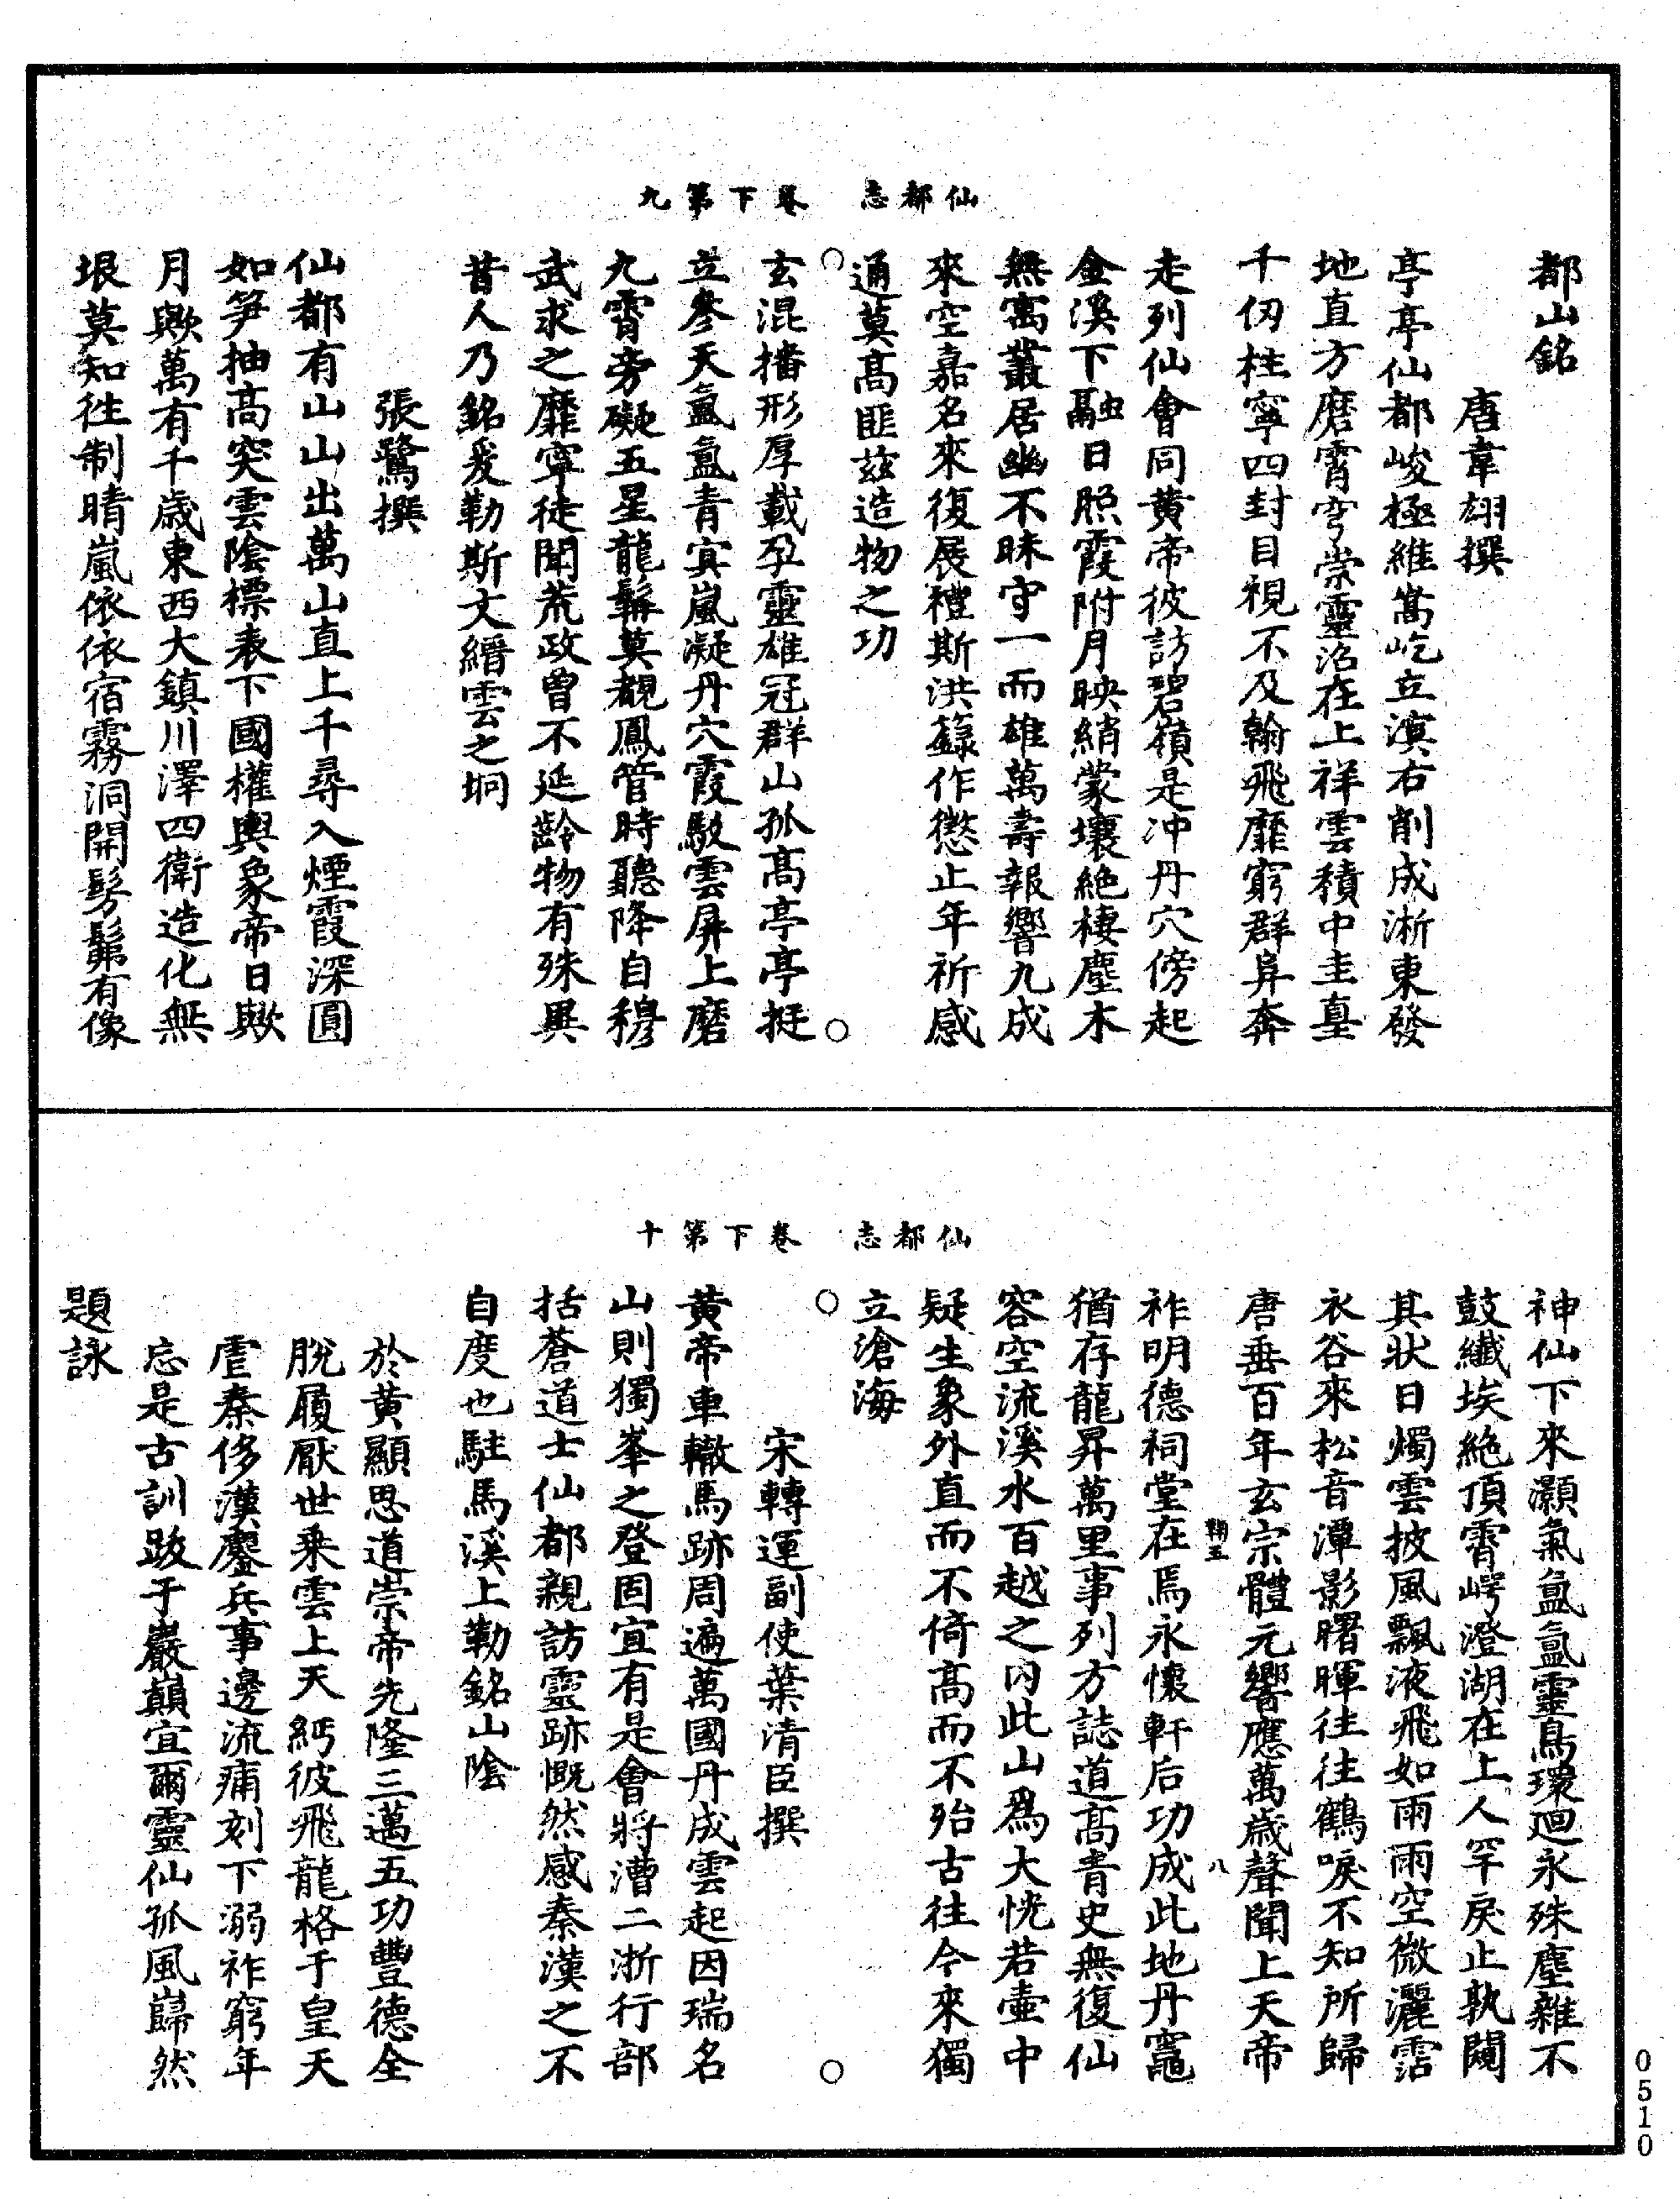 仙都志　卷下第九
都山銘
唐韋翃撰
亭亭仙都峻極維嵩屹立溟右削成淅東發
地直方磨霄穹崇靈沼在上祥雲積中圭臺
千仞柱寧四封目視不及翰飛靡窮群舁奔
走列仙會同黃帝彼訪碧嶺是冲丹穴傍起
金溪下融日照霞附月映綃蒙壤絶棲塵木
無寓叢居幽不昧守一而雄萬壽報響九成
來空嘉名來復展禮斯洪籙作懲止年祈感
通莫髙匪兹造物之功
玄混播形厚載孕靈雄冠群山孤髙亭亭挺
立參天氳氳青㝠嵐凝丹穴霞駮雲屏上磨
九霄旁礙五星龍髯莫覩鳳管時聽降自穆
武求之靡寧徒聞荒政曾不延齡物有殊異
昔人乃銘爰勒斯文縉雲之坰
張鷟撰
仙都有山山出萬山直上千尋入煙霞深圓
如笋抽髙突雲陰標表下國權輿象帝日歟
月歟萬有千歲東西大鎮川澤四衛造化無
垠莫知徃制晴嵐依依宿霧洞開髣髴有像
仙都志　卷下第十
神仙下來灝氣氳氳靈鳥環迴永殊塵雜不
鼓纎埃絶頂霄崿澄湖在上人罕戾止孰闚
其狀日燭雲披風飄液飛如雨雨空微灑霑
衣谷來松音潭影曙暉往往鶴唳不知所歸
唐垂百年玄宗體元響應萬歲聲聞上天帝
八
祚明德祠堂在焉永懷軒后功成此地丹竈
猶存龍昇萬里事列方誌道髙青史無復仙
容空流溪水百越之内此山爲大恍若壷中
疑生象外直而不倚髙而不殆古往今來獨
立滄海
宋轉運副使葉清臣撰
黃帝車轍馬跡周遍萬國丹成雲起因瑞名
山則獨峯之登固宜有是會將漕二浙行部
括蒼道士仙都親訪靈跡慨然感秦漢之不
自度也駐馬溪上勒銘山陰
於黃顯思道崇帝先隆三邁五功豐德全
脫履厭世乘雲上天網彼飛龍格于皇天
虐秦侈漢鏖兵事邊流痡刻下溺祚窮年
忘是古訓跋于巖巔宜爾靈仙孤風巋然
題詠
0510